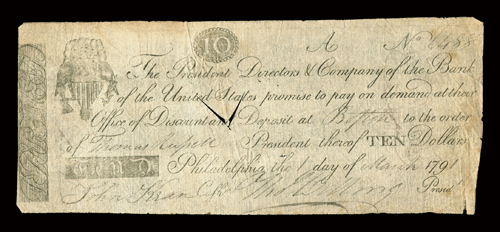 10
A No 2488
The President Directors & Company of the Bank
of the United States promise to pay on demand at their
Office of Discount and Deposit at Boston to the order
of Thomas Russell President thereof TEN Dollars
Philadelphia the day of March 1791
Cashr. Presid